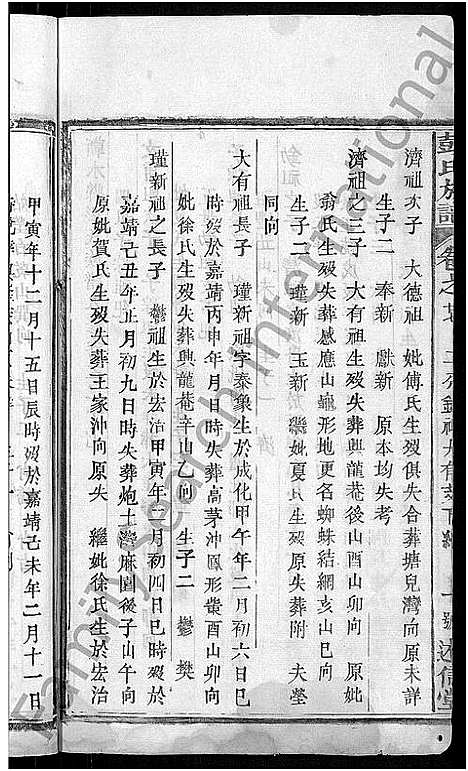 彭氏族譜
卷之
述信堂
濟祖次子 大德祖生 妣傅氏生歿俱失合葬塘兒灣向原未詳
生子二 奉新 獻新 原本均失考
濟祖之三子 大有祖生歿失葬興龍菴後山酉山卯向 原妣
翁氏生歿失葬感應山龜形地更名蜘蛛結網亥山巳向
生子二 瑾新 玉新 繼妣夏氏生歿原失葬附夫塋
同向
大有祖長子 瑾新祖字泰象生於成化甲午年二月初六日巳
時歿於嘉靖丙申年月日時失葬高茅沖鳳形耑酉山卯向
妣徐氏生歿失葬興龍菴辛山乙向 生子二 鬱 樊
瑾新祖之長子 鬱祖生於宏治甲寅年二月初四日巳時歿於
嘉靖己丑年正月初九日時失葬炮土灣麻園後子山午向
原妣賀氏生歿失葬王家沖向原失 繼妣徐氏生於宏治
甲寅年十二月十五日辰時歿於嘉靖己未年二月十一日
Family Search International